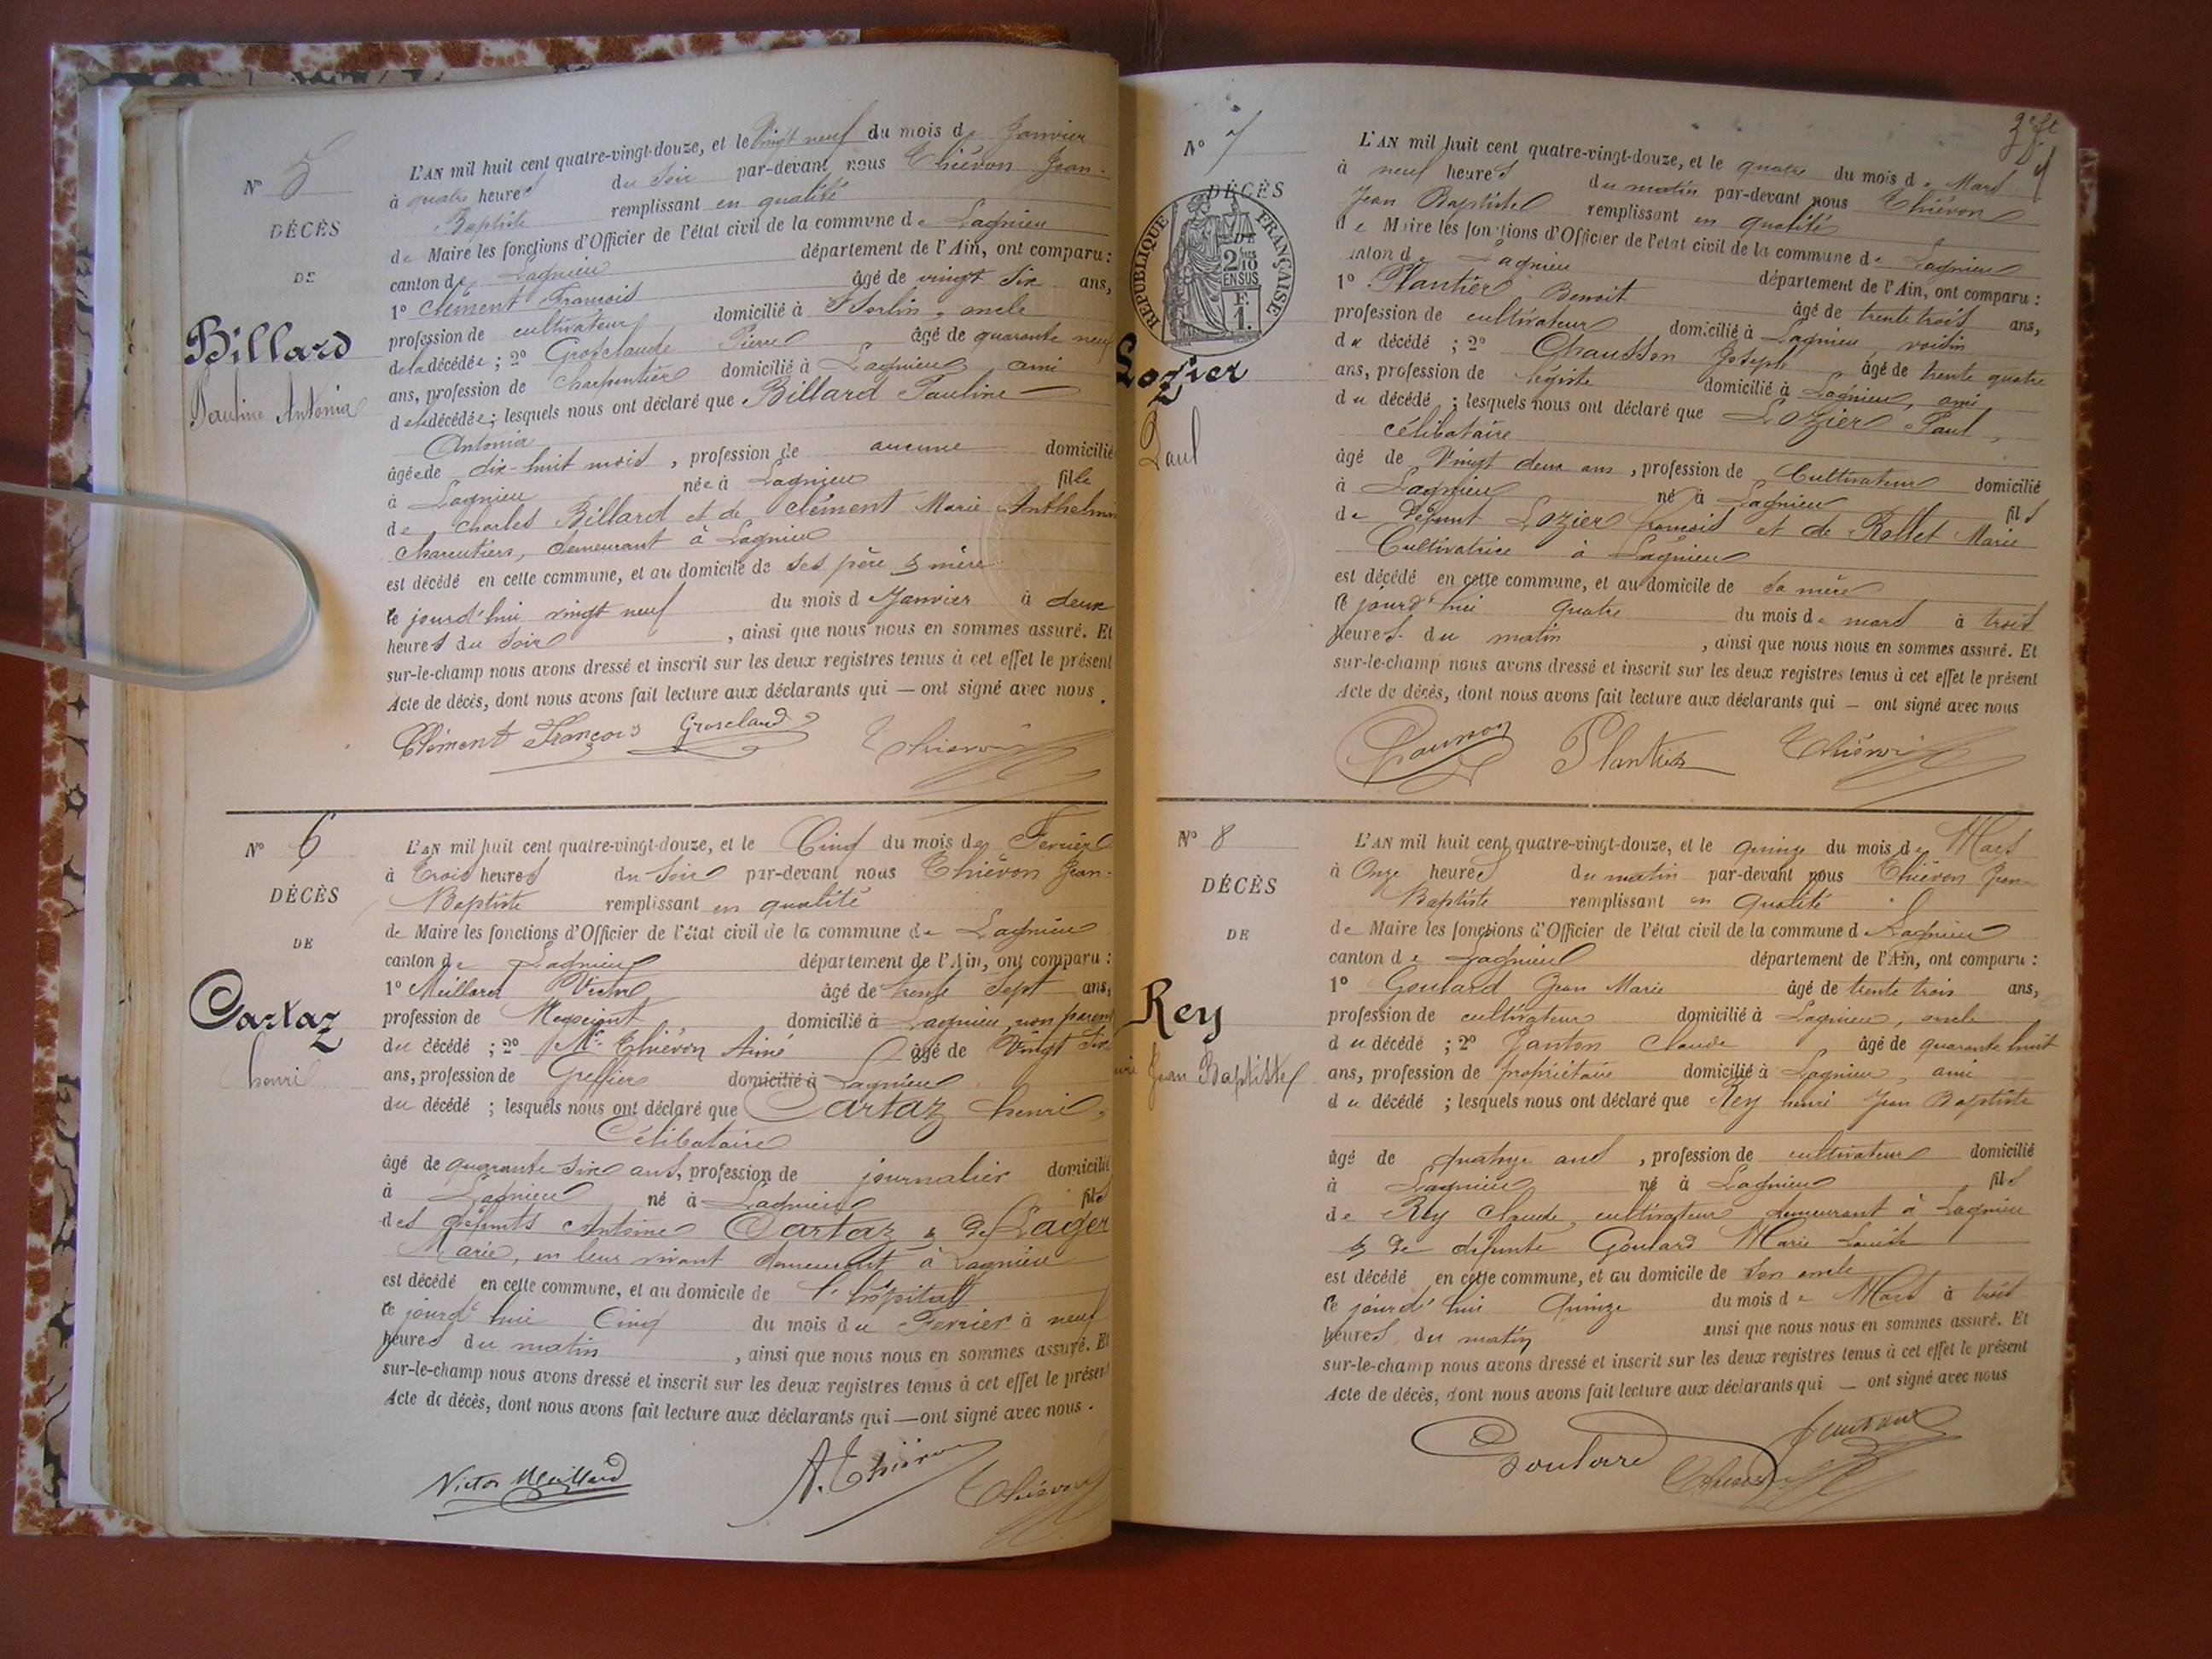 N° 5
DÉCÈS
DE
Billard
Pauline Antonia
L'AN mil huit cent quatre-vingt-douze, et le Vingt neuf du mois de Janvier
à quatre heures du soir par-devant nous Thiévon Jean-
Baptiste remplissant en qualité
de Maire les fonctions d'Officier de l'état civil de la commune de Lagnieu
canton de Lagnieu département de l'Ain, ont comparu :
1° Clément François âgé de vingt six ans,
profession de cultivateur domicilié à St Sorlin, oncle
de la décédée ; 2° Grosclaude Pierre âgé de quarante neuf
ans, profession de Charpentier domicilié à Lagnieu ami
de la décédée ; lesquels nous ont déclaré que Billard Pauline
Antonia
âgée de dix-huit mois, profession de aucune domicilié
à Lagnieu née à Lagnieu fille
de Charles Billard et de Clément Marie Anthelmin
charcutiers, demeurant à Lagnieu
est décédé en cette commune, et au domicile de ses père & mère
ce jourd'hui vingt neuf du mois d Janvier à deux
heures du soir, ainsi que nous nous en sommes assuré. Et
sur-le-champ nous avons dressé et inscrit sur les deux registres tenus à cet effet le présent
Acte de décès, dont nous avons fait lecture aux déclarants qui — ont signé avec nous.
Clément François Grosclaude Thiévon
N° 6
DÉCÈS
DE
Cartaz
henri
L'AN mil huit cent quatre-vingt-douze, et le Cinq du mois de Fevrier
à Trois heures du Soir par-devant nous Thiévon Jean-
Baptiste remplissant en qualité
de Maire les fonctions d'Officier de l'état civil de la commune de Lagnieu
canton de Lagnieu département de l'Ain, ont comparu :
1° Meillard Victor âgé de trente sept ans,
profession de Negociant domicilié à Lagnieu, non parent
du décédé ; 2° Mr Thiévon Aimé âgé de Vingt six
ans, profession de Greffier domicilié à Lagnieu
du décédé ; lesquels nous ont déclaré que Cartaz henri,
Célibataire
âgé de quarante six ans, profession de journalier domicilié
à Lagnieu né à Lagnieu fils
des défunts Antoine Cartaz & de Lager
Marie, en leur vivant demeurant à Lagnieu
est décédé en cette commune, et au domicile de l'hôpital
ce jourd'hui Cinq du mois du Fevrier à neuf
heures du matin, ainsi que nous nous en sommes assuré. Et
sur-le-champ nous avons dressé et inscrit sur les deux registres tenus à cet effet le présent
Acte de décès, dont nous avons fait lecture aux déclarants qui — ont signé avec nous.
Victor Meillard A. Thiévon Thiévon
N° 7
DÉCÈS
RÉPUBLIQUE FRANÇAISE
2/10 EN SUS
F. 1.
Lozier
Paul
L'AN mil huit cent quatre-vingt-douze, et le quatre du mois de Mars
à neuf heures du matin par-devant nous Thiévon
Jean Baptiste remplissant en qualité
de Maire les fonctions d'Officier de l'état civil de la commune de Lagnieu
canton de Lagnieu département de l'Ain, ont comparu :
1° Plantier Benoit âgé de trente trois ans,
profession de cultivateur domicilié à Lagnieu voisin
du décédé ; 2° Chausson Joseph âgé de trente quatre
ans, profession de légiste domicilié à Lagnieu, ami
du décédé ; lesquels nous ont déclaré que Lozier Paul,
célibataire
âgé de Vingt deux ans, profession de Cultivateur domicilié
à Lagnieu né à Lagnieu fils
de Défunt Lozier françois et de Rollet Marie
Cultivatrice à Lagnieu
est décédé en cette commune, et au domicile de sa mère
ce jourd'hui quatre du mois de mars à trois
heures du matin, ainsi que nous nous en sommes assuré. Et
sur-le-champ nous avons dressé et inscrit sur les deux registres tenus à cet effet le présent
Acte de décès, dont nous avons fait lecture aux déclarants qui — ont signé avec nous
Plantier Thiévon
N° 8
DÉCÈS
DE
Rey
henri Jean Baptiste
L'AN mil huit cent quatre-vingt-douze, et le quinze du mois de Mars
à Onze heures du matin par-devant nous Thiévon Jean-
Baptiste remplissant en qualité
de Maire les fonctions d'Officier de l'état civil de la commune d Lagnieu
canton de Lagnieu département de l'Ain, ont comparu :
1° Goulard Jean Marie âgé de trente trois ans,
profession de cultivateur domicilié à Lagnieu, oncle
du décédé ; 2° Janton Claude âgé de quarante huit
ans, profession de propriétaire domicilié à Lagnieu, ami
du décédé ; lesquels nous ont déclaré que Rey henri Jean Baptiste
âgé de quatorze ans, profession de cultivateur domicilié
à Lagnieu né à Lagnieu fils
de Rey Claude, cultivateur demeurant à Lagnieu
& de défunte Goulard Marie Louise
est décédé en cette commune, et au domicile de son oncle
ce jourd'hui Quinze du mois de Mars à trois
heures du matin ainsi que nous nous en sommes assuré. Et
sur-le-champ nous avons dressé et inscrit sur les deux registres tenus à cet effet le présent
Acte de décès, dont nous avons fait lecture aux déclarants qui — ont signé avec nous